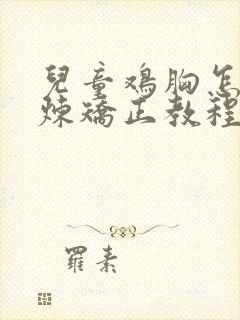 兒童鸡胸怎
炼矯正教程
羅素